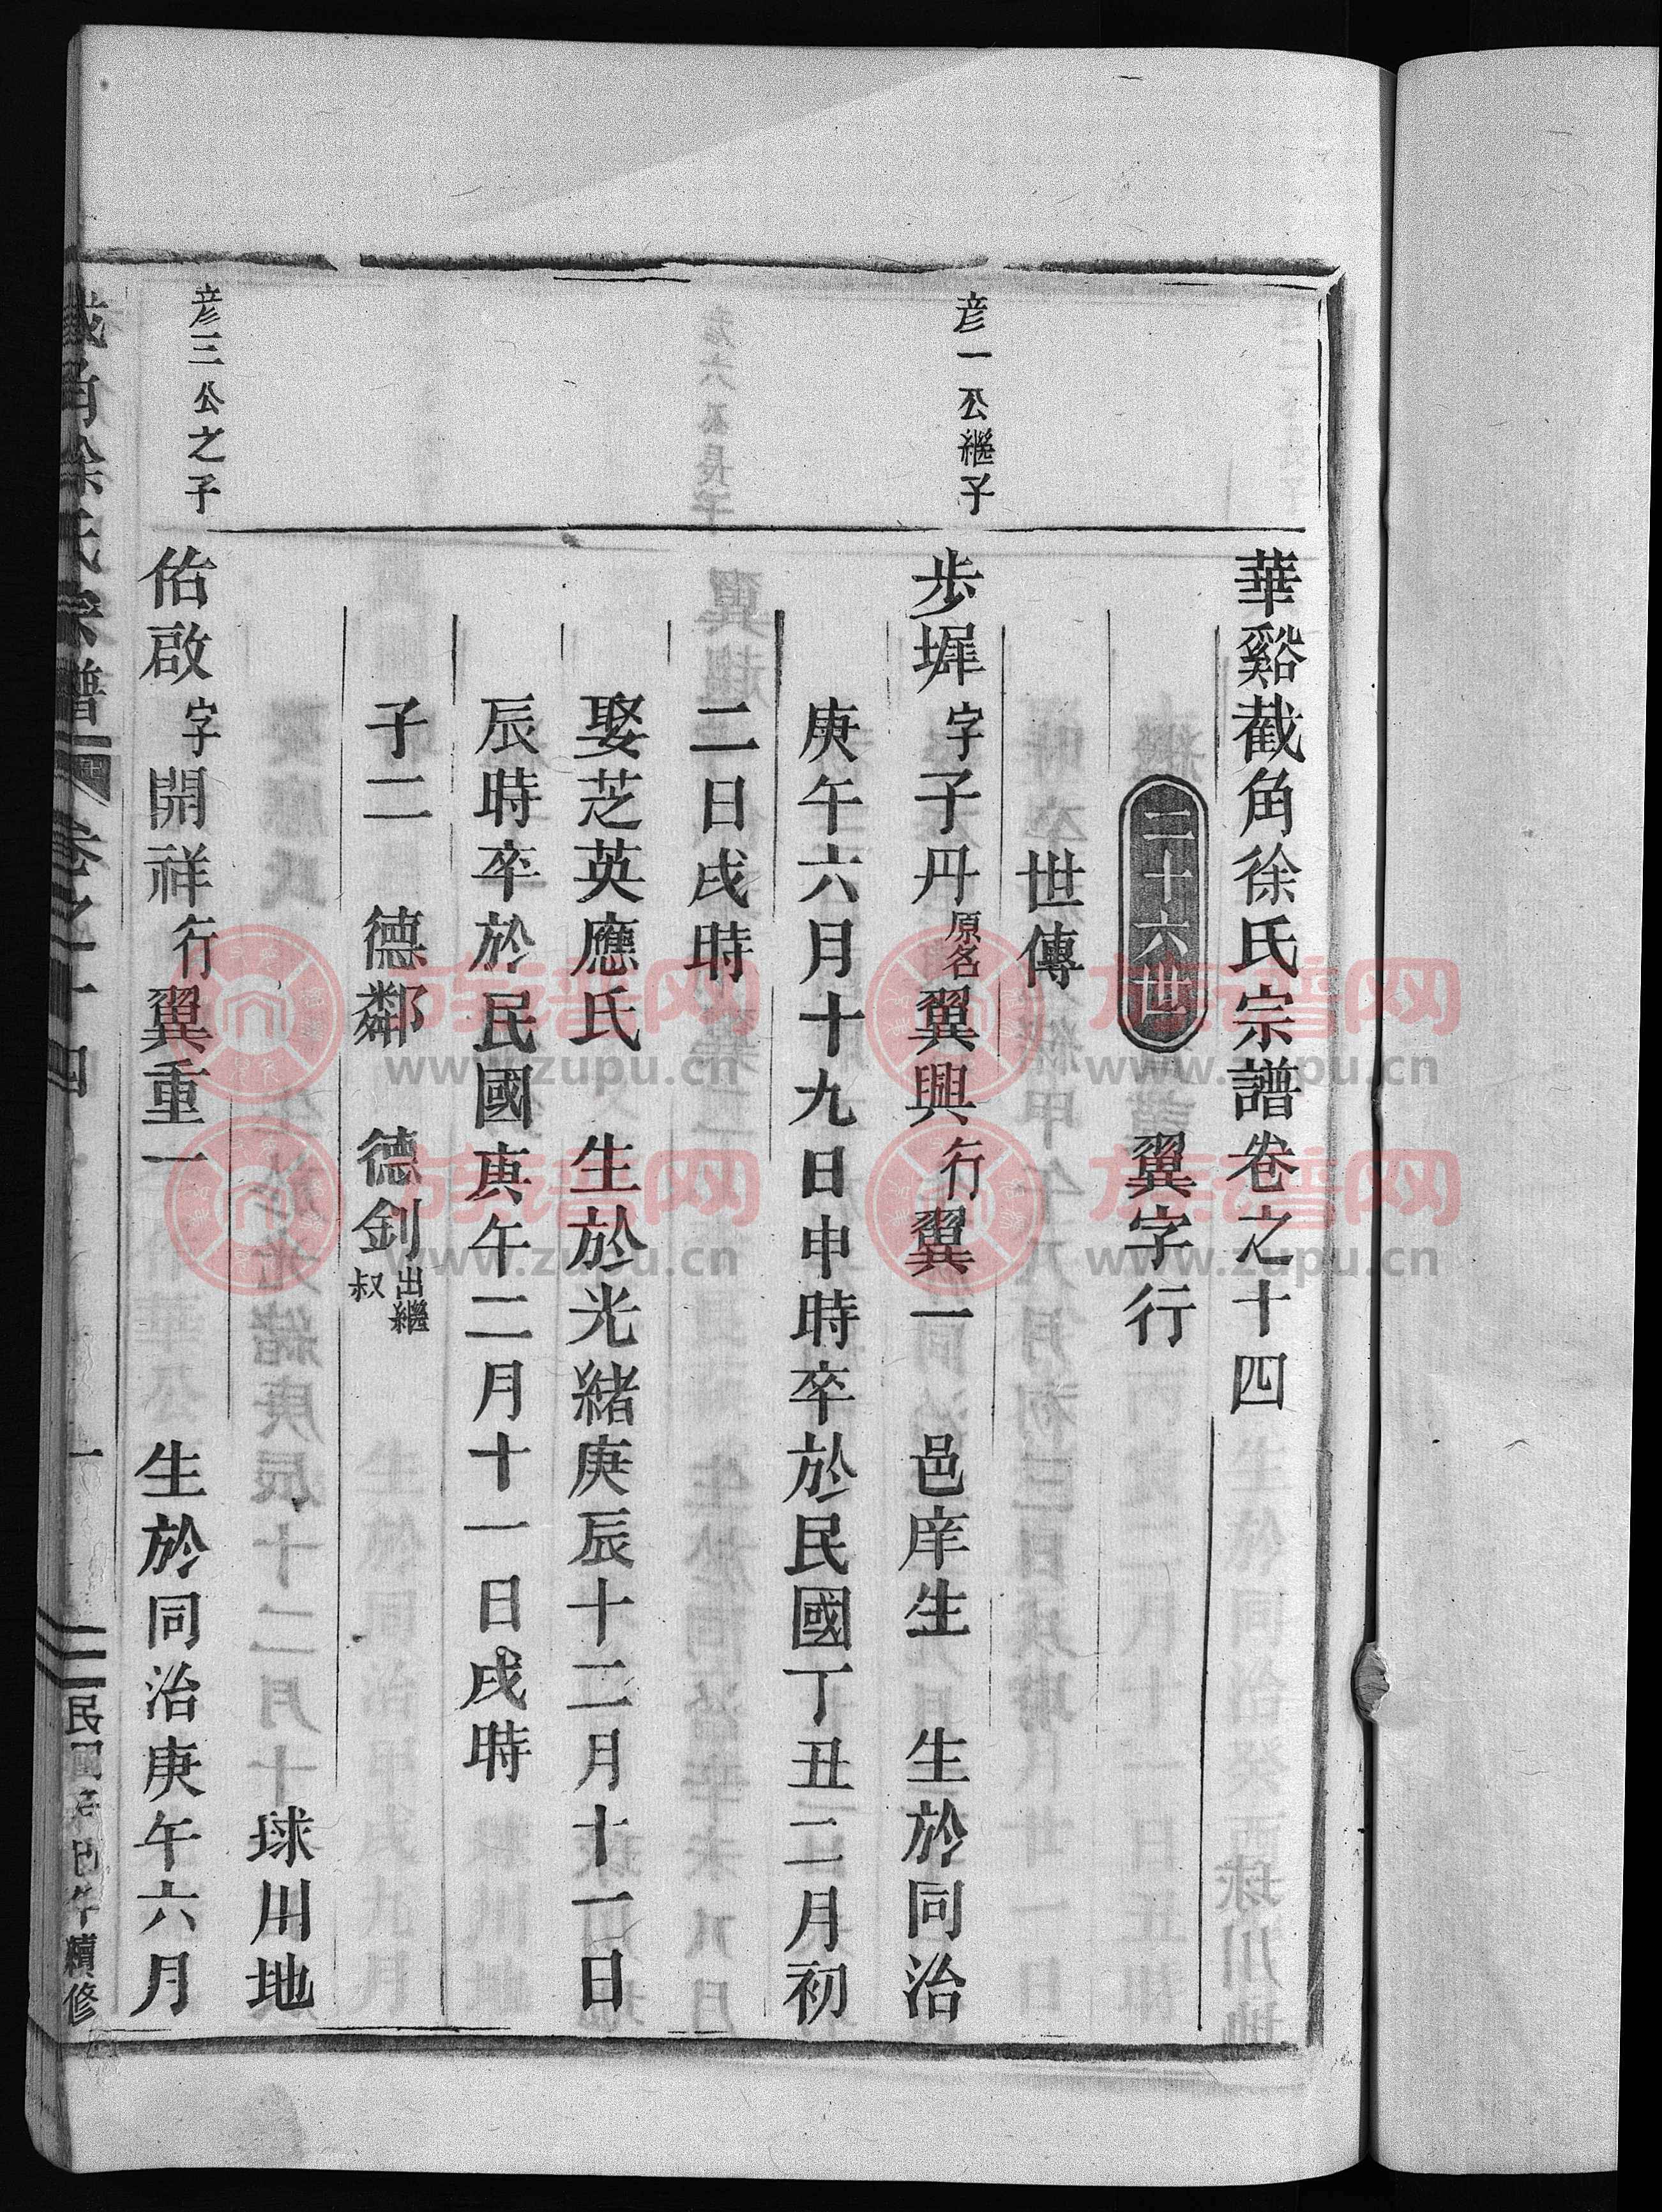 華谿截角徐氏宗譜卷之十四
二十六世
翼字行
世傳
彦一公繼子
步墀字子丹原名翼興行翼一 邑庠生 生於同治
庚午六月十九日申時卒於民國丁丑二月初
二日戌時
娶芝英應氏 生於光緒庚辰十二月十一日
辰時卒於民國庚午二月十一日戌時
子二 德鄰 德釗出繼叔
球川地
彦三公之子
佑啟字開祥行翼重一 生於同治庚午六月
截角徐氏宗譜
卷之十四
一
續修
族谱网
www.zupu.cn
族谱网
www.zupu.cn
族谱网
www.zupu.cn
族谱网
www.zupu.cn